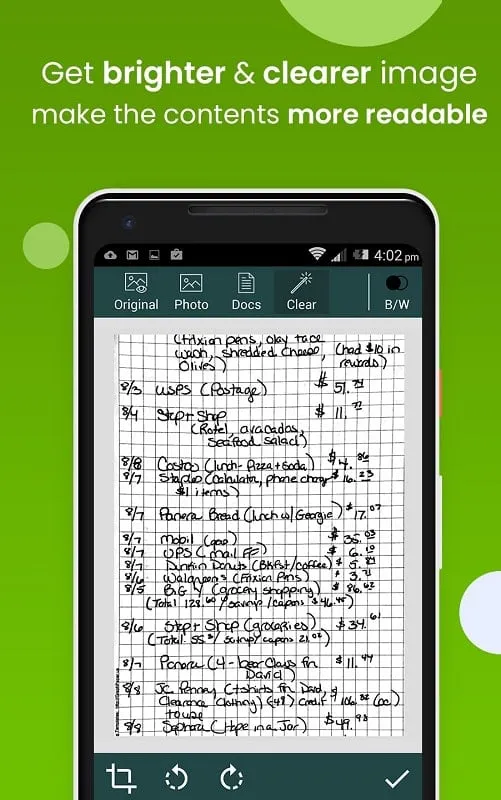 Get brighter & clearer image
make the contents more readable
4:02 pm
Original Photo Docs Clear B/W
(Frixion pens, olay face
wash, shredded cheese, (had $10 in
Olives) rewards)
8/3 USPS (Postage) $ 51.
8/4 Stop + Shop $ 11.
(Rotel, avacados,
seafood salad)
8/8 Costco (lunch - Pizza + Soda) $ 4. 86
8/7 Staples (Calculator, phone charger $ 16. 23
$1 items)
8/7 Panera Bread (lunch w/ Georgie) $ 17. 07
8/7 Mobil (gas) $ 35. 03
8/7 UPS (mail FF) $ 6. 10
8/7 Dunkin Donuts (BKfst/coffee) $ 5. 84
8/6 Walgreens (Frixion Pens) $ 3. 71
8/5 BIG Y (grocery shopping) $ 86. 62
(Total 128. 60 / savings / coupons $ 46. 45)
8/6 Stop + Shop (groceries) $ 34. 61
(Total: 55 / savings / coupons 21. 02)
8/7 Panera (4 - bear claws for $ 11. 47
David)
8/8 JC Penney (t-shirts for David, $
Clearance clothing) (48) credit 106. 32 (cc)
to use
8/9 Sephora (Hope in a Jar) $ 49.